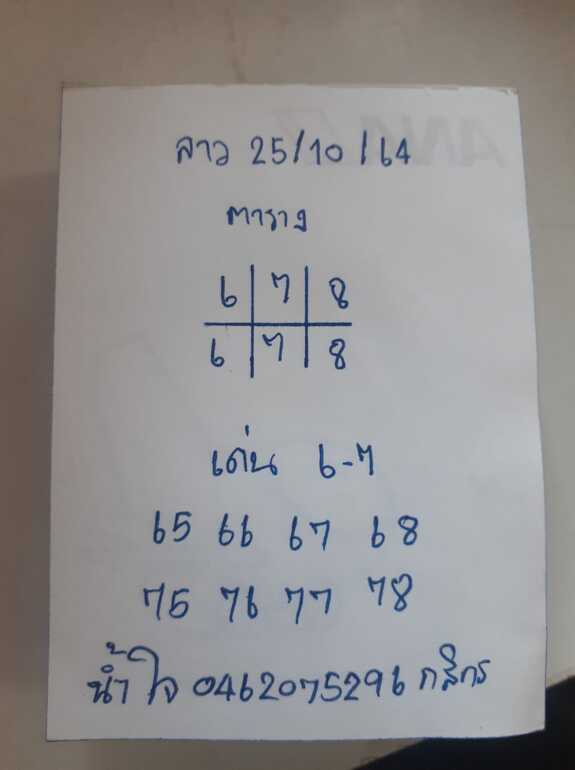 ลาว 25/10/64
ตาราง
6 7 8
6 7 8
เด่น 6-7
65 66 67 68
75 76 77 78
น้ำใจ 0462075296 กสิกร